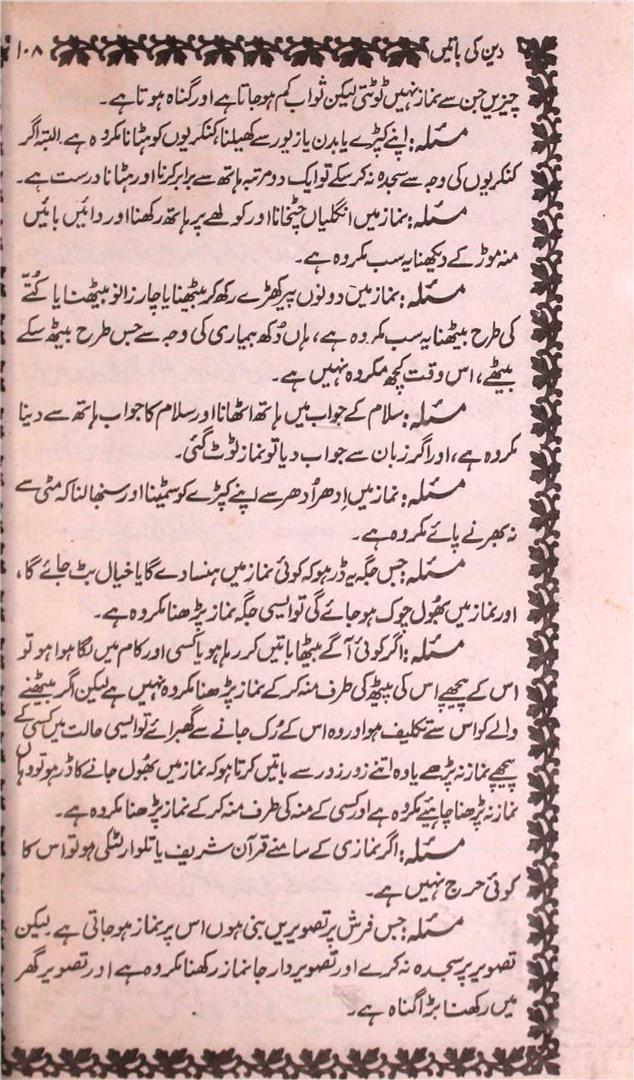 دین کی باتیں ۱۰۸
چیزیں جن سے نماز نہیں ٹوٹتی لیکن ثواب کم ہو جاتا ہے اور گناہ ہوتا ہے۔
مسئلہ: اپنے کپڑے یا بدن یا زیور سے کھیلنا، کنکریوں کو ہٹانا مکروہ ہے البتہ اگر
کنکریوں کی وجہ سے سجدہ نہ کر سکے تو ایک دو مرتبہ ہاتھ سے برابر کرنا اور ہٹانا درست ہے۔
مسئلہ: نماز میں انگلیاں چٹخانا اور کولھے پر ہاتھ رکھنا اور دائیں بائیں
منہ موڑ کے دیکھنا یہ سب مکروہ ہے۔
مسئلہ: نماز میں دونوں پیر کھڑے رکھ کر بیٹھنا یا چار زانو بیٹھنا یا کُتّے
کی طرح بیٹھنا یہ سب مکروہ ہے، ہاں دُکھ بیماری کی وجہ سے جس طرح بیٹھ سکے
بیٹھے، اس وقت کچھ مکروہ نہیں ہے۔
مسئلہ: سلام کے جواب میں ہاتھ اٹھانا اور سلام کا جواب ہاتھ سے دینا
مکروہ ہے، اور اگر زبان سے جواب دیا تو نماز ٹوٹ گئی۔
مسئلہ: نماز میں اِدھر اُدھر سے اپنے کپڑے کو سمیٹنا اور سنبھالنا کہ مٹی سے
نہ بھرنے پائے مکروہ ہے۔
مسئلہ: جس جگہ یہ ڈر ہو کہ کوئی نماز میں ہنسا دے گا یا خیال بٹ جائے گا،
اور نماز میں بھُول چوک ہو جائے گی تو ایسی جگہ نماز پڑھنا مکروہ ہے۔
مسئلہ: اگر کوئی آگے بیٹھا باتیں کر رہا ہو یا کسی اور کام میں لگا ہوا ہو تو
اس کے پیچھے اس کی پیٹھ کی طرف منہ کر کے نماز پڑھنا مکروہ نہیں ہے لیکن اگر بیٹھنے
والے کو اس سے تکلیف ہو اور وہ اس کے رُک جانے سے گھبرائے تو ایسی حالت میں کسی کے
پیچھے نماز نہ پڑھے یا وہ اتنے زور زور سے باتیں کرتا ہو کہ نماز میں بھُول جانے کا ڈر ہو تو وہاں
نماز نہ پڑھنا چاہیئے مکروہ ہے اور کسی کے منہ کی طرف منہ کر کے نماز پڑھنا مکروہ ہے۔
مسئلہ: اگر نمازی کے سامنے قرآن شریف یا تلوار لٹکی ہو تو اس کا
کوئی حرج نہیں ہے۔
مسئلہ: جس فرش پر تصویریں بنی ہوں اس پر نماز ہو جاتی ہے لیکن
تصویر پر سجدہ نہ کرے اور تصویر دار جا نماز رکھنا مکروہ ہے اور تصویر گھر
میں رکھنا بڑا گناہ ہے۔